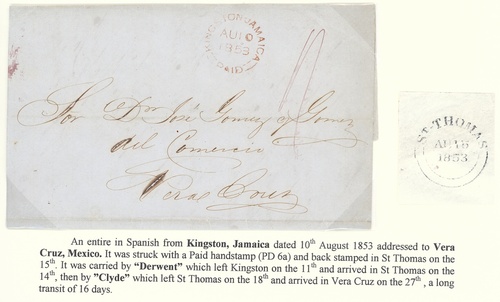 KINGSTON-JAMAICA
AU10
1853
PAID
Sor Dn José Gomez y Gomez
del Comercio
Vera Cruz
ST THOMAS
1853
An entire in Spanish from Kingston, Jamaica dated 10th August 1853 addressed to Vera
Cruz, Mexico. It was struck with a Paid handstamp (PD 6a) and back stamped in St Thomas on the
15th. It was carried by "Derwent" which left Kingston on the 11th and arrived in St Thomas on the
14th, then by "Clyde" which left St Thomas on the 18th and arrived in Vera Cruz on the 27th, a long
transit of 16 days.